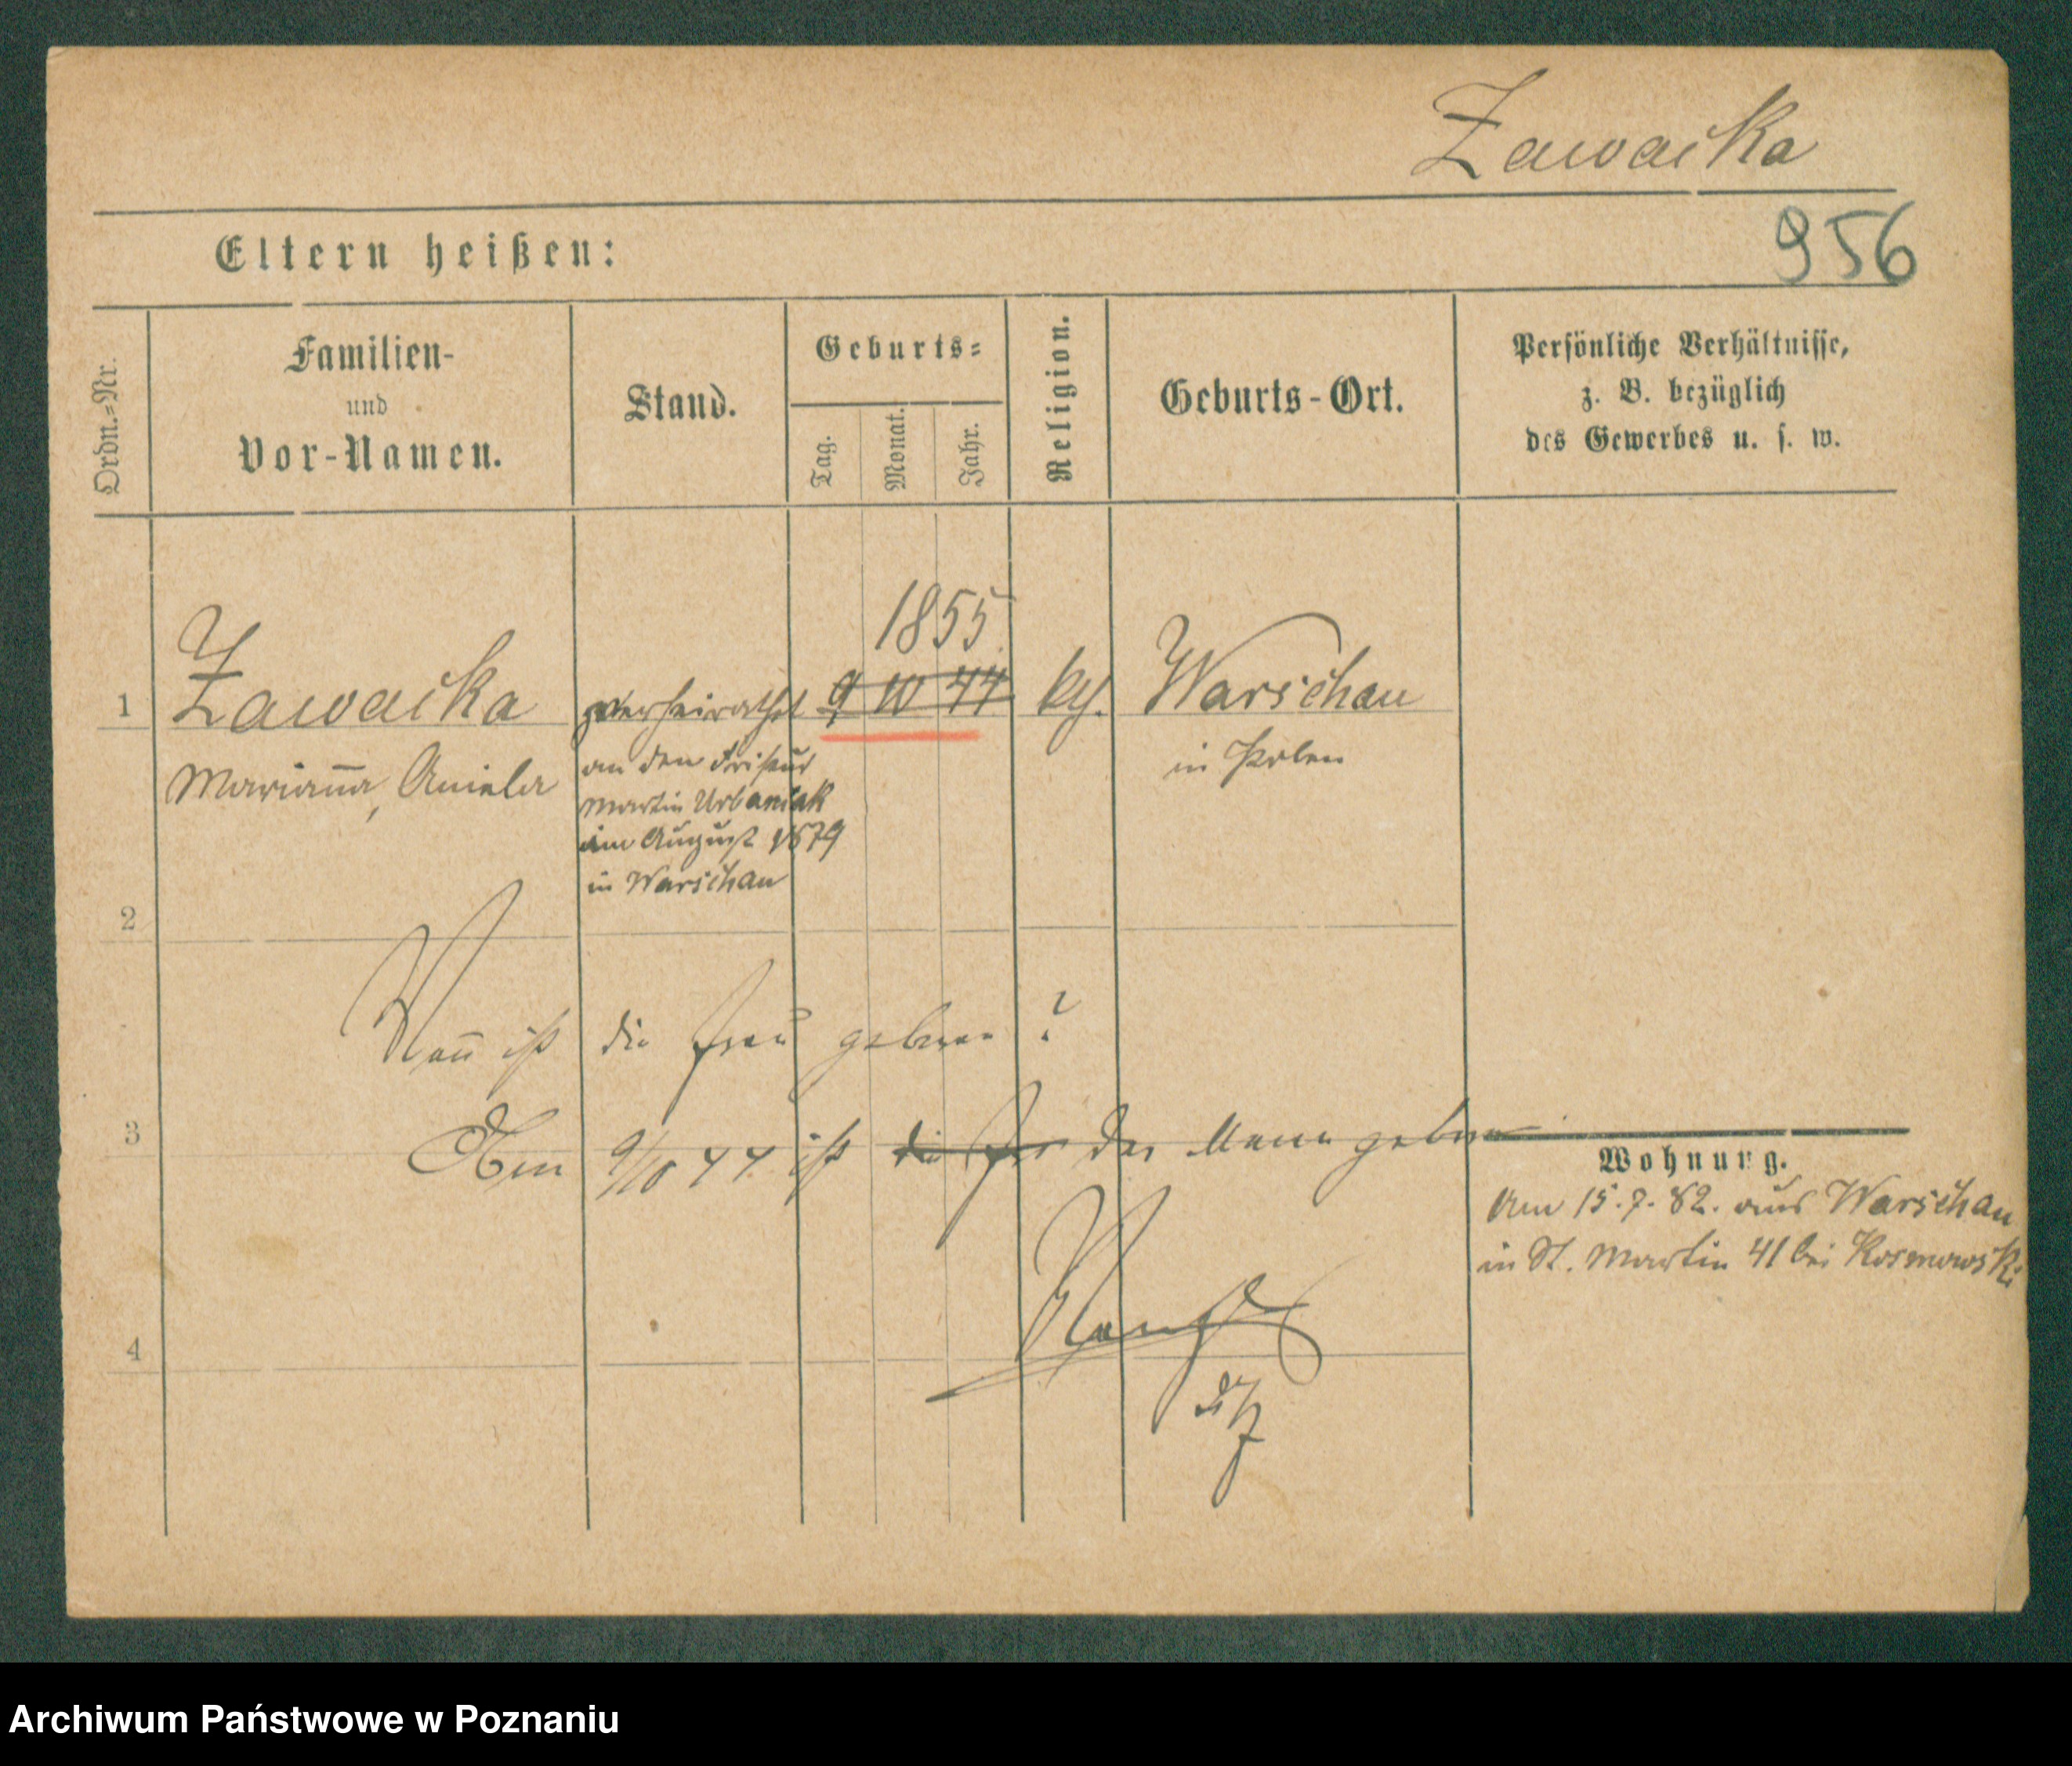 Zawacka
956
Eltern heißen:
Ordn.=Nr.
Familien-
und
Vor-Namen.
Stand.
Geburts=
Tag.
Monat.
Jahr.
Religion.
Geburts-Ort.
Persönliche Verhältnisse,
z. B. bezüglich
des Gewerbes u. s. w.
1855
1 Zawacka verheirathet 9 10 44 kth. Warschau
Marianna, Aniela
an den Friseur
Martin Urbaniak
im August 1879
in Warschau
in Polen
2
Wann ist die Frau geboren?
3
Am 9/10 44 ist die Fr der Mann geboren
Wohnung.
Am 15.7.82. aus Warschau
in St. Martin 41 bei Kosmowski
4
Archiwum Państwowe w Poznaniu